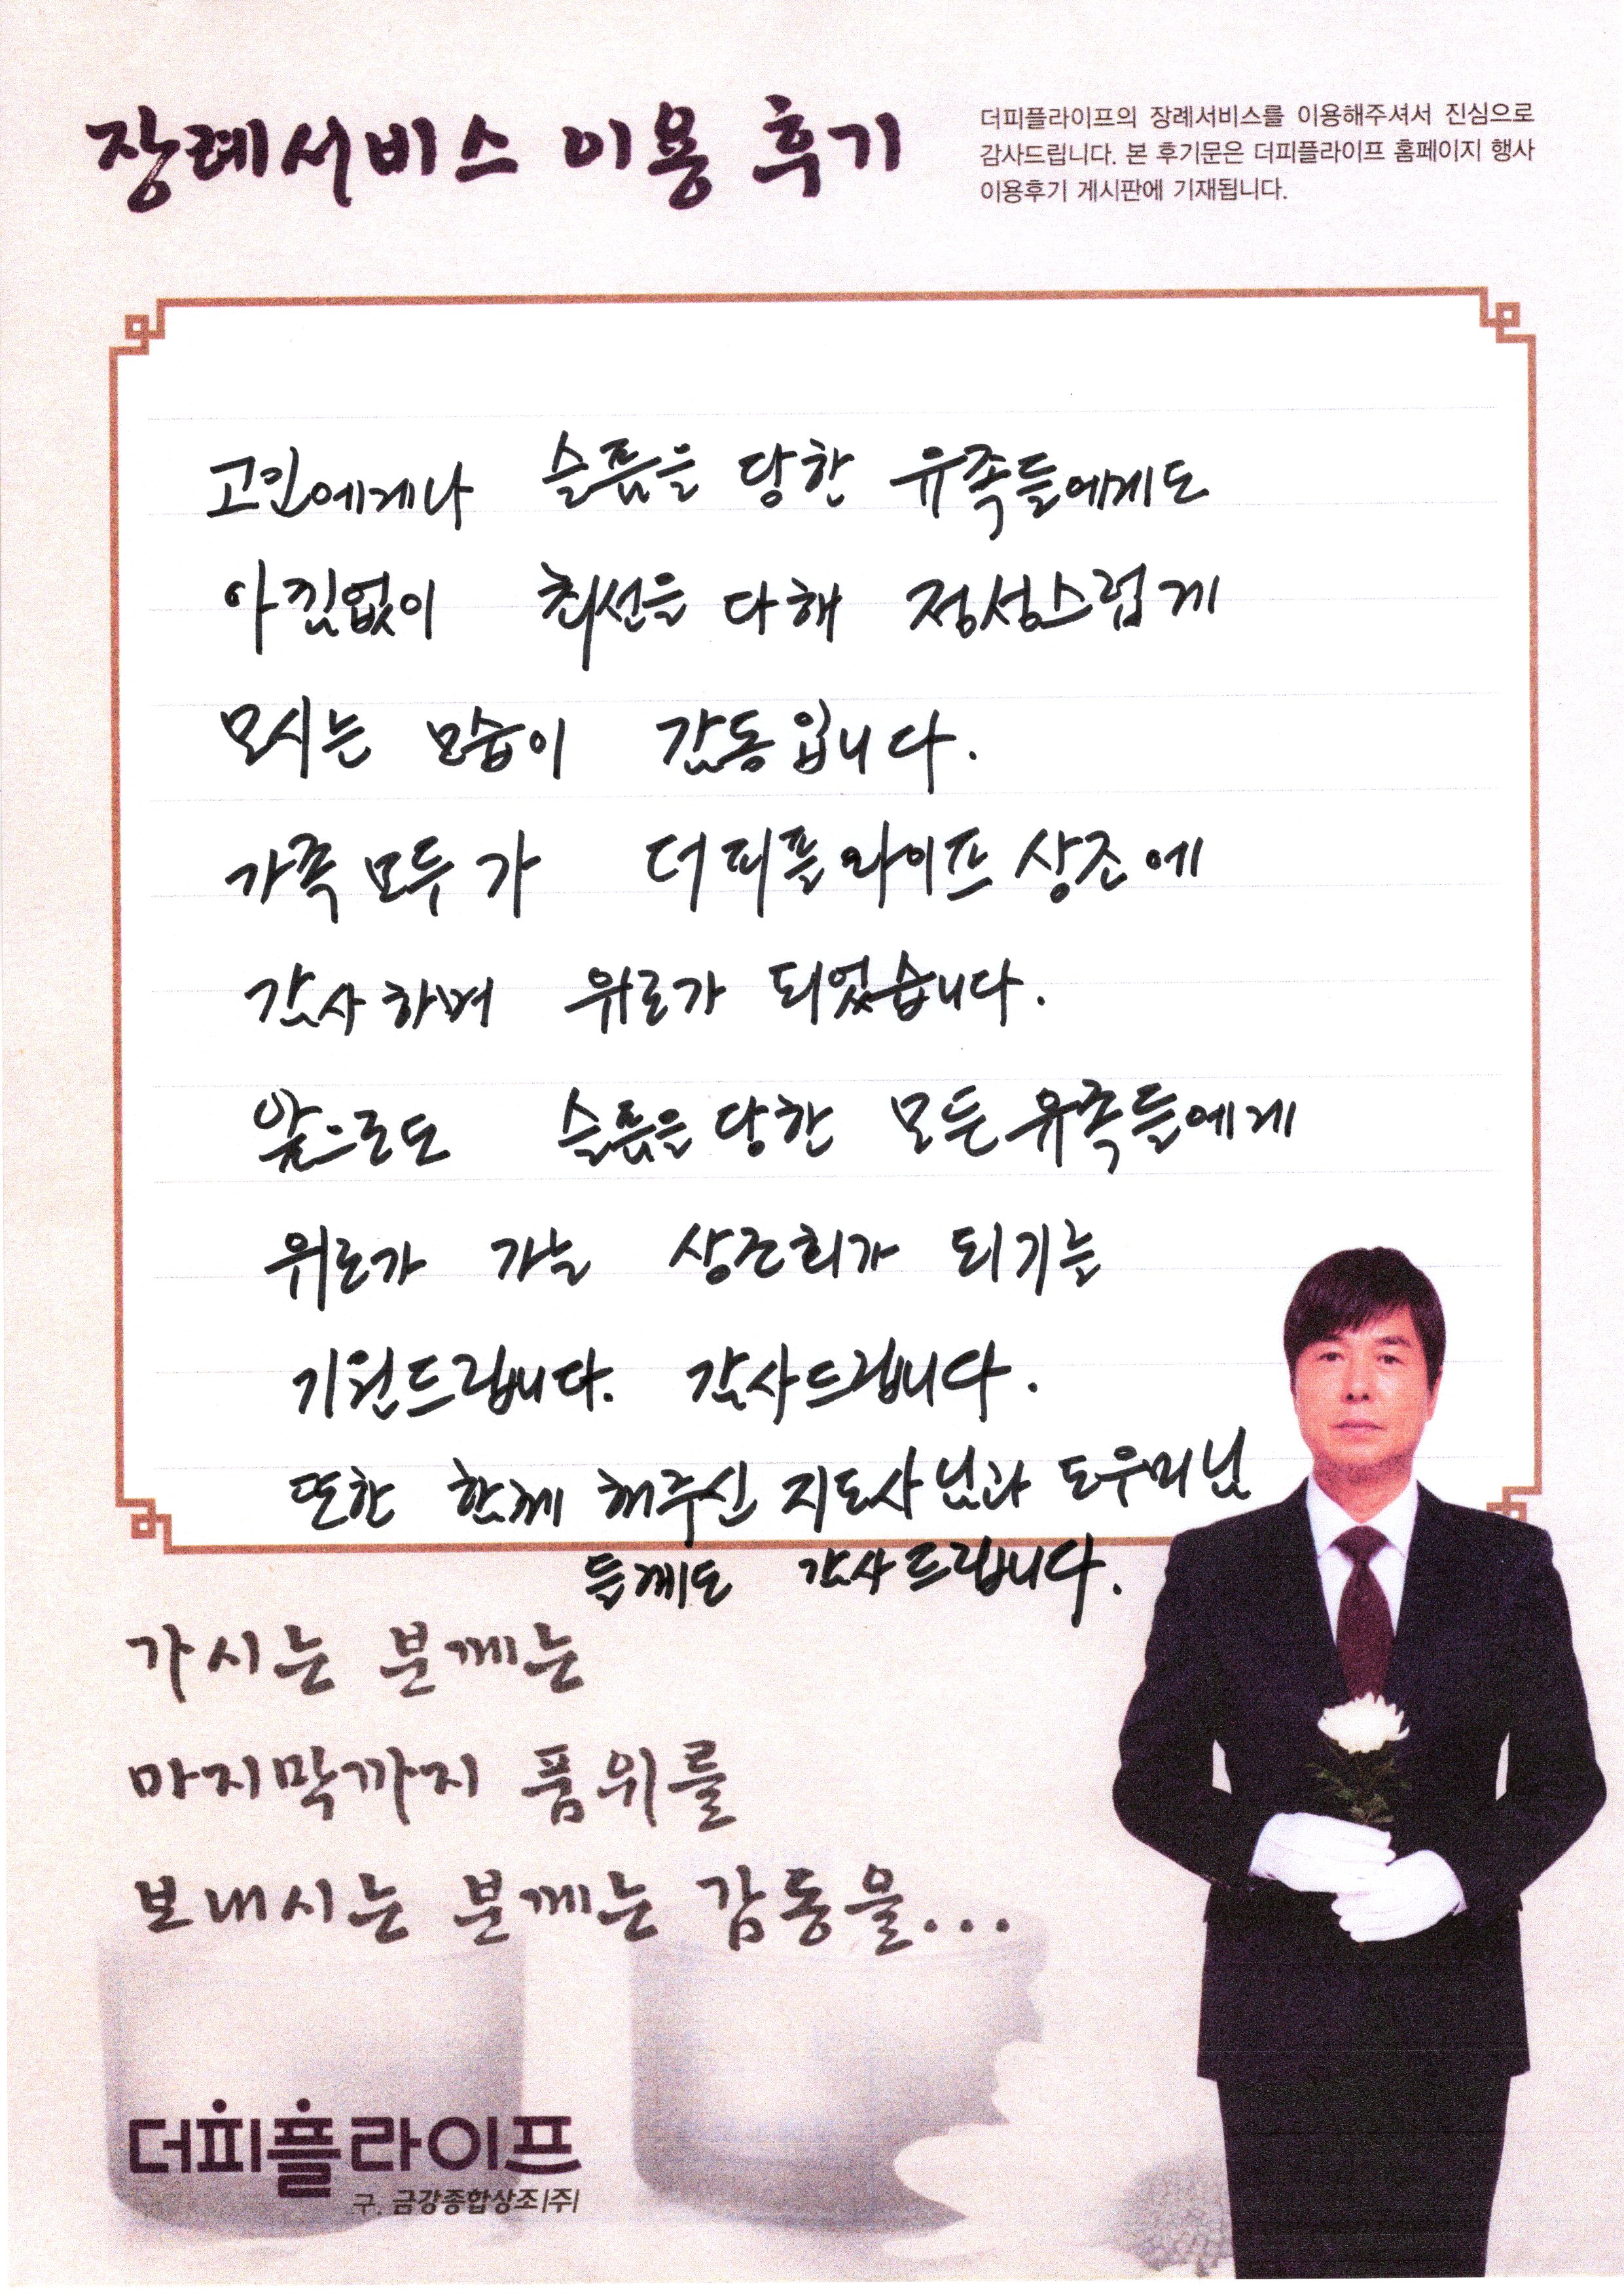 장례서비스 이용 후기
더피플라이프의 장례서비스를 이용해주셔서 진심으로
감사드립니다. 본 후기문은 더피플라이프 홈페이지 행사
이용후기 게시판에 기재됩니다.
고인에게나 슬픔을 당한 유족들에게도
아낌없이 최선을 다해 정성스럽게
모시는 모습이 감동입니다.
가족 모두가 더피플라이프 상조에
감사하며 위로가 되었습니다.
앞으로도 슬픔을 당한 모든 유족들에게
위로가 가는 상조회가 되기는
기원드립니다. 감사드립니다.
또한 함께 해주신 지도사님과 도우미님
들께도 감사드립니다.
가시는 분께는
마지막까지 품위를
보내시는 분께는 감동을...
더피플라이프
구. 금강종합상조|주|